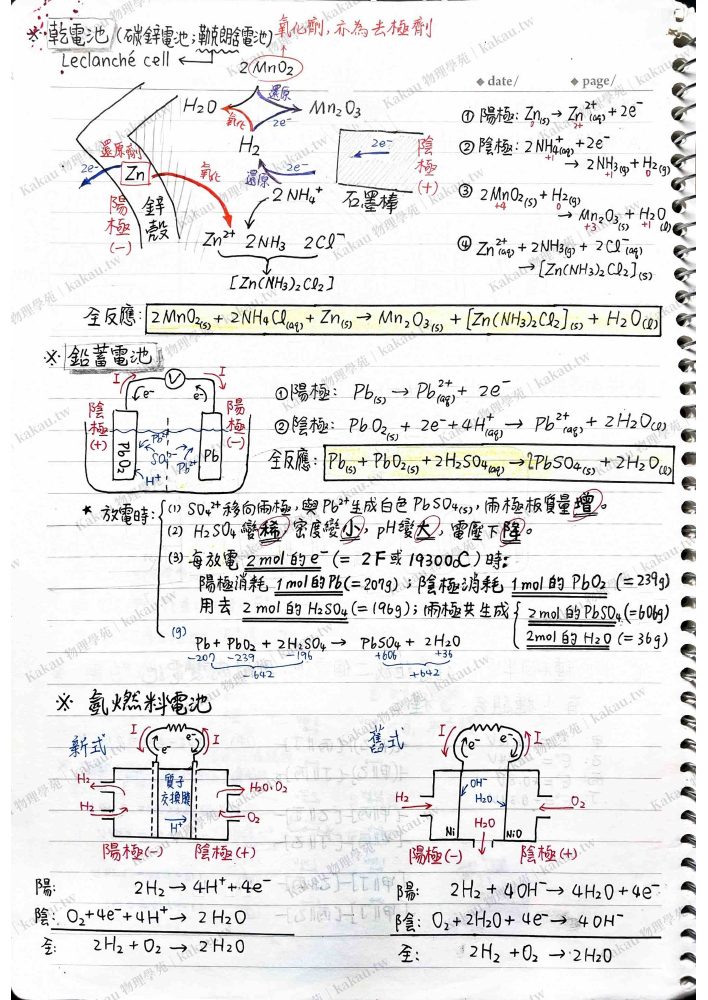 ※ 乾電池 (碳鋅電池;勒克朗舍電池) 氧化劑,亦為去極劑
Leclanché cell
2MnO2
◆ date/ ◆ page/
H2O 還原 Mn2O3
氧化 2e⁻
H2
還原 2e⁻
2NH4⁺
還原劑
2e⁻ Zn 氧化
陽極(-) 鋅殼
2e⁻ 陰極(+)
石墨棒
Zn²⁺ 2NH3 2Cl⁻
[Zn(NH3)2Cl2]
① 陽極: Zn(s) → Zn²⁺(aq) + 2e⁻
0 2+
② 陰極: 2NH4⁺(aq) + 2e⁻
+1
→ 2NH3(g) + H2(g)
0
③ 2MnO2(s) + H2(g)
+4 0
→ Mn2O3(s) + H2O(l)
+3 +1
④ Zn²⁺(aq) + 2NH3(g) + 2Cl⁻(aq)
→ [Zn(NH3)2Cl2](s)
全反應: 2MnO2(s) + 2NH4Cl(aq) + Zn(s) → Mn2O3(s) + [Zn(NH3)2Cl2](s) + H2O(l)
※ 鉛蓄電池
I V I
e⁻ e⁻
陰極(+) 陽極(-)
PbO2 Pb²⁺ SO4²⁻ Pb²⁺ H⁺ Pb
①陽極: Pb(s) → Pb²⁺(aq) + 2e⁻
②陰極: PbO2(s) + 2e⁻ + 4H⁺(aq) → Pb²⁺(aq) + 2H2O(l)
全反應: Pb(s) + PbO2(s) + 2H2SO4(aq) → 2PbSO4(s) + 2H2O(l)
★ 放電時: (1) SO4²⁺移向兩極,與Pb²⁺生成白色PbSO4(s),兩極板質量增。
(2) H2SO4 變稀,密度變小,pH變大,電壓下降。
(3) 每放電 2mol的e⁻ (= 2F或193000C) 時:
陽極消耗 1mol的Pb(=207g); 陰極消耗 1mol的PbO2 (=239g)
用去 2mol的H2SO4(=196g); 兩極共生成 2mol的PbSO4(=606g)
2mol的H2O (=36g)
(g) Pb + PbO2 + 2H2SO4 → PbSO4 + 2H2O
-207 -239 -196 +606 +36
-642 +642
※ 氫燃料電池
新式
I e⁻ e⁻ I
H2 質子交換膜 H2O、O2
H2 H⁺ O2
陽極(-) 陰極(+)
陽: 2H2 → 4H⁺ + 4e⁻
陰: O2 + 4e⁻ + 4H⁺ → 2H2O
全: 2H2 + O2 → 2H2O
舊式
I e⁻ e⁻ I
OH⁻
H2 H2O O2
Ni H2O NiO
陽極(-) 陰極(+)
陽: 2H2 + 4OH⁻ → 4H2O + 4e⁻
陰: O2 + 2H2O + 4e⁻ → 4OH⁻
全: 2H2 + O2 → 2H2O
Kakau 物理學苑 | kakau.tw